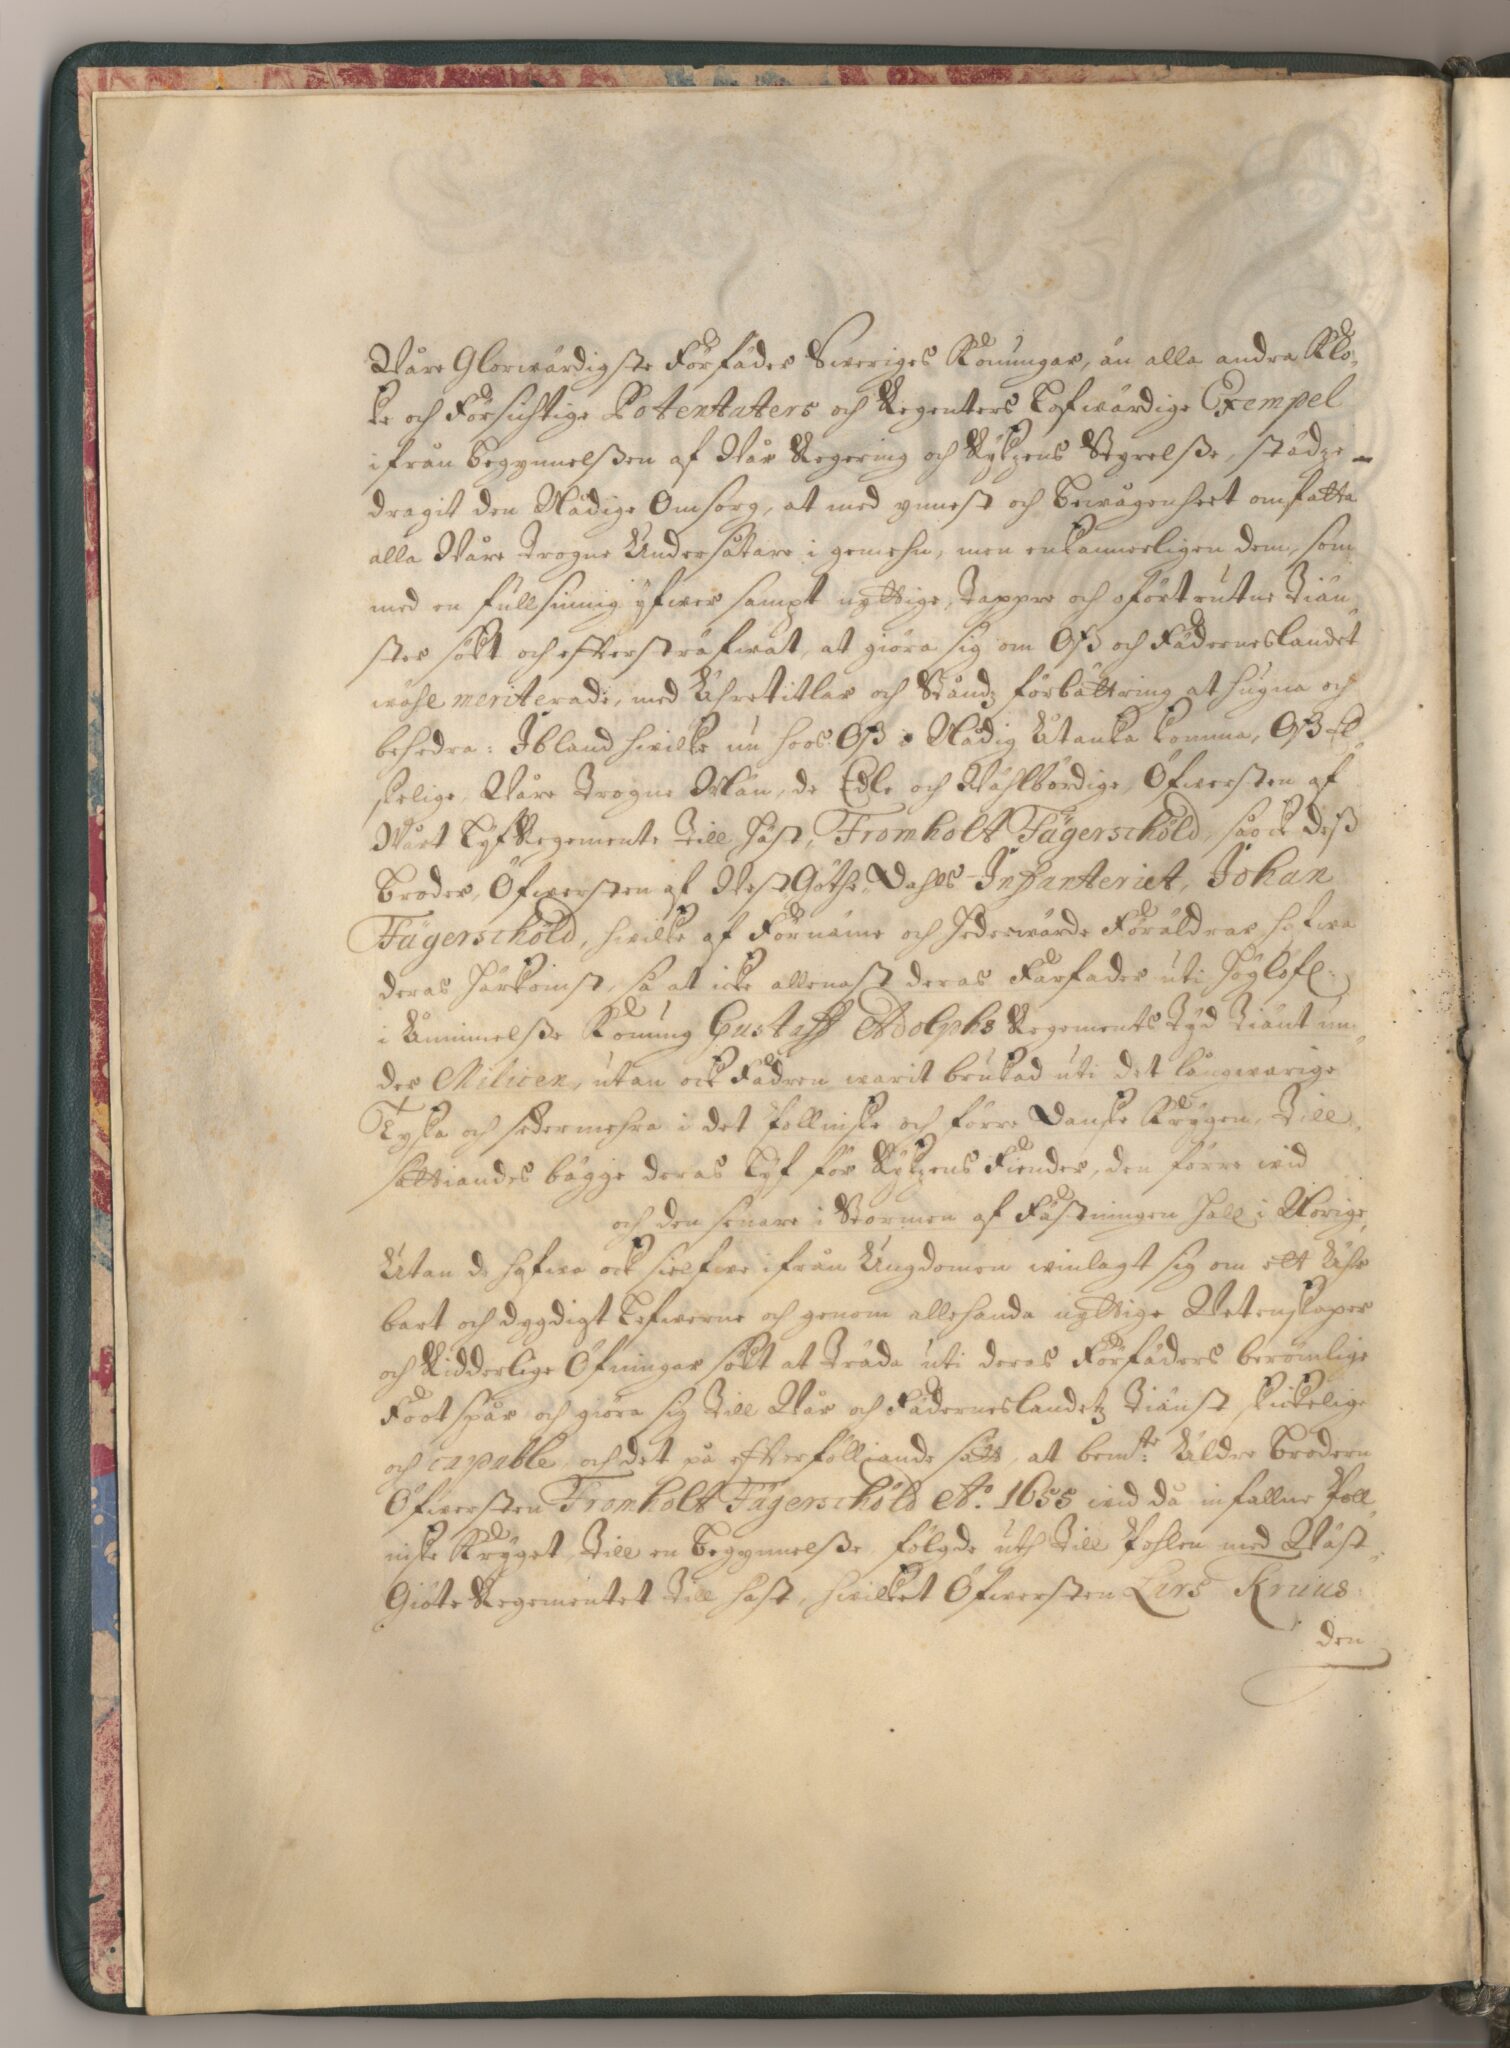 Wåre Glorwärdigste Förfäder Sweriges Konungar, än alla andra Klo-
ke och Försichtige Potentaters och Regenters Lofwärdige Exempel
ifrån begynnelßen af Wår Regering och Rykzens Styrelße, städze
dragit den Nådige Omsorg, at med ynnest och bewågenheet omfatta
alla Wåre trogne Undersåtare i gemehn, men enkannerligen dem, som
med en fullsinnig yfwer sampt nyttige, tappre och oförtrutne tiän
ster sökt och effterstráfwat, at giöra sig om Oß och Fäderneslandet
wähl meriterade, med Ähretitlar och Ståndz förbättring at hugna och
behedra: Ibland hwilke nu hoos Oß i Nådig Åtanka komma, Oß El
skelige, Wåre trogne Män, de Edle och Wählbördige, Öfwersten af
Wårt Lyf Regemente till häst, Fromholt Fägerschöld, så ock deß
broder, Öfwersten af West Göthe Dahls-Infanteriet, Johan
Fägerschöld, hwilke af Förnäme och hederwärde Föräldrar hafwa
deras härkomst, så at icke allenast deras Farfader uti högloflᵉ:
i Åminnelße Konung Gustaff Adolphs Regements tyd tiänt un
der Milicen, utan ock Fadren warit brukad uti det långwarige
Tyska och sedermehra i det Pollniske och förre Danske Krygen, till
sättiandes bägge deras Lyf för Rykzens Fiender, den förre wid
och den senare i Stormen af Fästningen hall i Norige,
Utan de hafwa ock sielfwe ifrån Ungdomen winlagt sig om ett Ähr
bart och dygdigt Lefwerne och genom allehanda nyttige Wetenskaper
och Ridderlige Öfningar sökt at träda uti deras Förfäders berömlige
Footspår och giöra sig till Wår och Fäderneslandetz tiänst skickelige
och capable, och det på effterfölliande sätt, at bemᵗᵉ: Äldre brodern
Öfwersten Fromholt Fägerschöld A:o 1655 wid då infallne Poll
niske Kryget, till en begynnelße, fölgde uth till Pohlen med Wäst
Giöte Regementet till häst, hwilket Öfwersten Lars Kruus
den